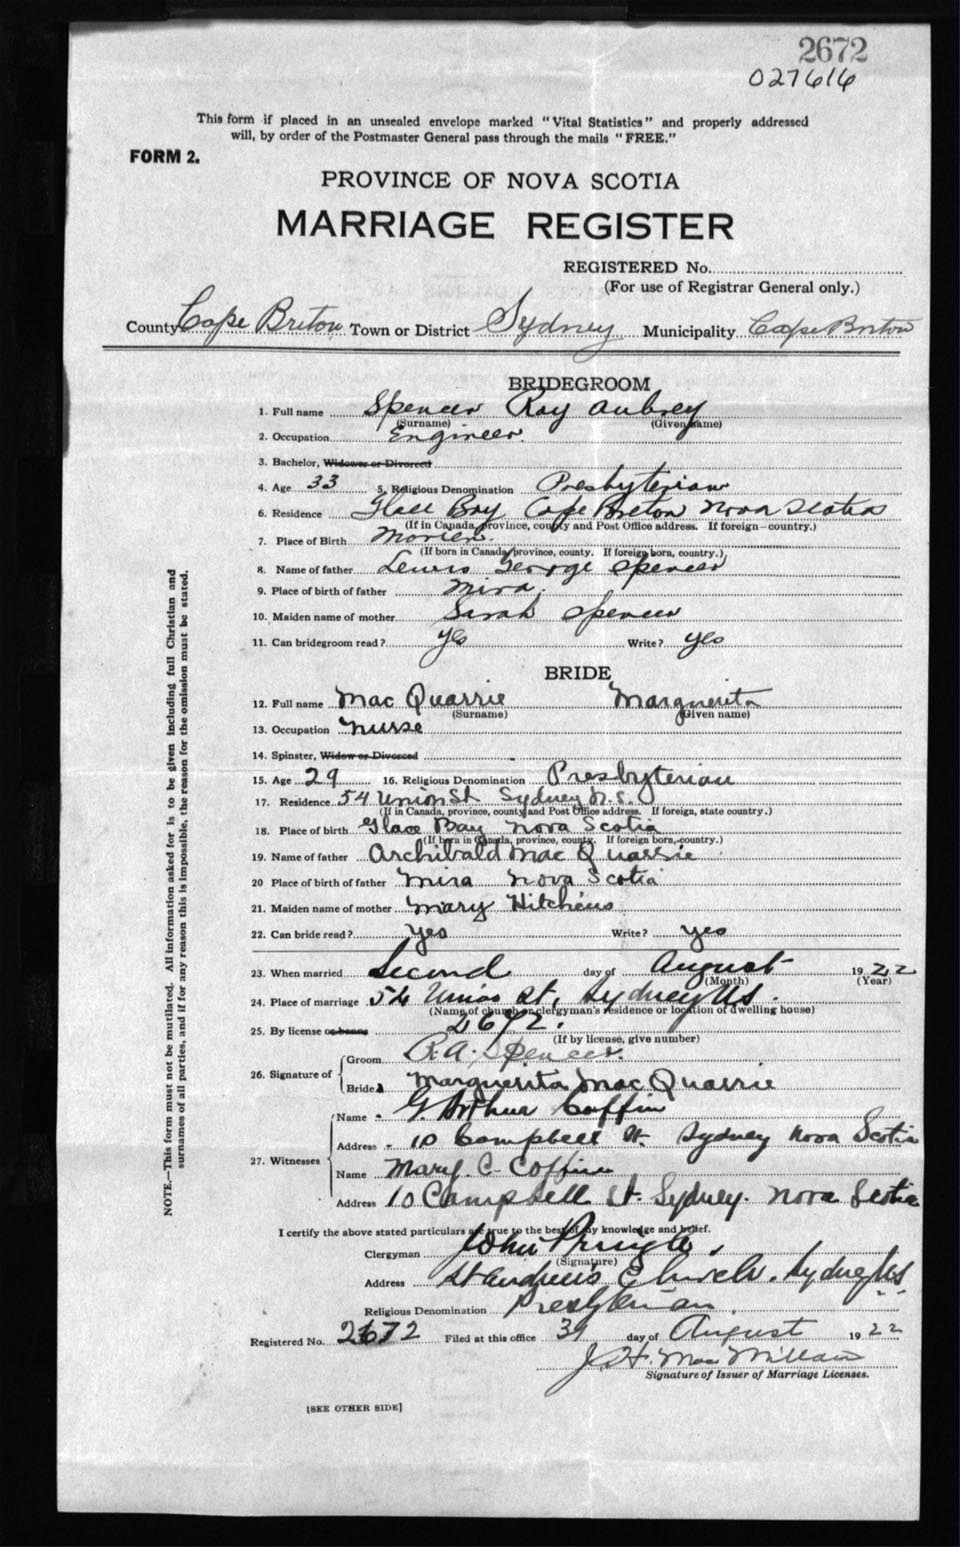 2672
027616
This form if placed in an unsealed envelope marked "Vital Statistics" and properly addressed
will, by order of the Postmaster General pass through the mails "FREE."
FORM 2.
PROVINCE OF NOVA SCOTIA
MARRIAGE REGISTER
REGISTERED No.
(For use of Registrar General only.)
County Cape Breton Town or District Sydney Municipality Cape Breton
BRIDEGROOM
1. Full name Spencer Roy Aubrey
(Surname) (Given name)
2. Occupation Engineer
3. Bachelor, Widower or Divorced
4. Age 33 5. Religious Denomination Presbyterian
6. Residence Glace Bay Cape Breton Nova Scotia
(If in Canada, province, county and Post Office address. If foreign—country.)
7. Place of Birth Morien
(If born in Canada, province, county. If foreign born, country.)
8. Name of father Lewis George Spencer
9. Place of birth of father Mira
10. Maiden name of mother Sarah Spencer
11. Can bridegroom read? yes Write? yes
BRIDE
12. Full name Mac Quarrie Marguerita
(Surname) (Given name)
13. Occupation Nurse
14. Spinster, Widow or Divorced
15. Age 29 16. Religious Denomination Presbyterian
17. Residence 54 Union St Sydney N.S.
(If in Canada, province, county and Post Office address. If foreign, state country.)
18. Place of birth Glace Bay Nova Scotia
(If born in Canada, province, county. If foreign born, country.)
19. Name of father Archibald Mac Quarrie
20 Place of birth of father Mira Nova Scotia
21. Maiden name of mother Mary Hitchens
22. Can bride read? yes Write? yes
23. When married Second day of August 1922
(Month) (Year)
24. Place of marriage 54 Union St, Sydney NS.
(Name of church or clergyman's residence or location of dwelling house)
25. By license or banns 2672.
(If by license, give number)
26. Signature of Groom R. A. Spencer.
Bride Marguerita Mac Quarrie
27. Witnesses
Name G. Arthur Coffin
Address 10 Campbell St. Sydney Nova Scotia
Name Mary C. Coffin
Address 10 Campbell St. Sydney. Nova Scotia
I certify the above stated particulars are true to the best of my knowledge and belief.
Clergyman John Pringle,
(Signature)
Address St Andrew's Church. Sydney NS
Religious Denomination Presbyterian.
Registered No. 2672 Filed at this office 31 day of August 1922
J. H. Mac Millan
Signature of Issuer of Marriage Licenses.
[SEE OTHER SIDE]
NOTE.—This form must not be mutilated. All information asked for is to be given including full Christian and
surnames of all parties, and if for any reason this is impossible, the reason for the omission must be stated.